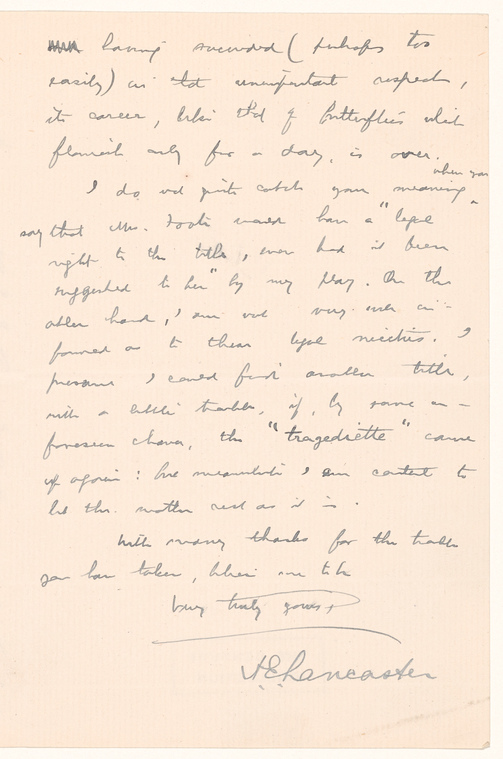 having succeeded (perhaps too
easily) in that unimportant respect,
its career, like that of butterflies which
flourish only for a day, is over.
I do not quite catch your meaning when you
say that Mrs. would have a "legal
right to the title, even had it been
suggested to her" by my play. On the
other hand, I am not very well in-
formed as to these legal niceties. I
presume I could find another title,
with a little trouble, if, by some un-
foreseen chance, the "tragediette" came
up again: but meanwhile I am content to
let the matter rest as it is.
With many thanks for the trouble
you have taken, believe me to be
Very truly yours,
A.E. Lancaster